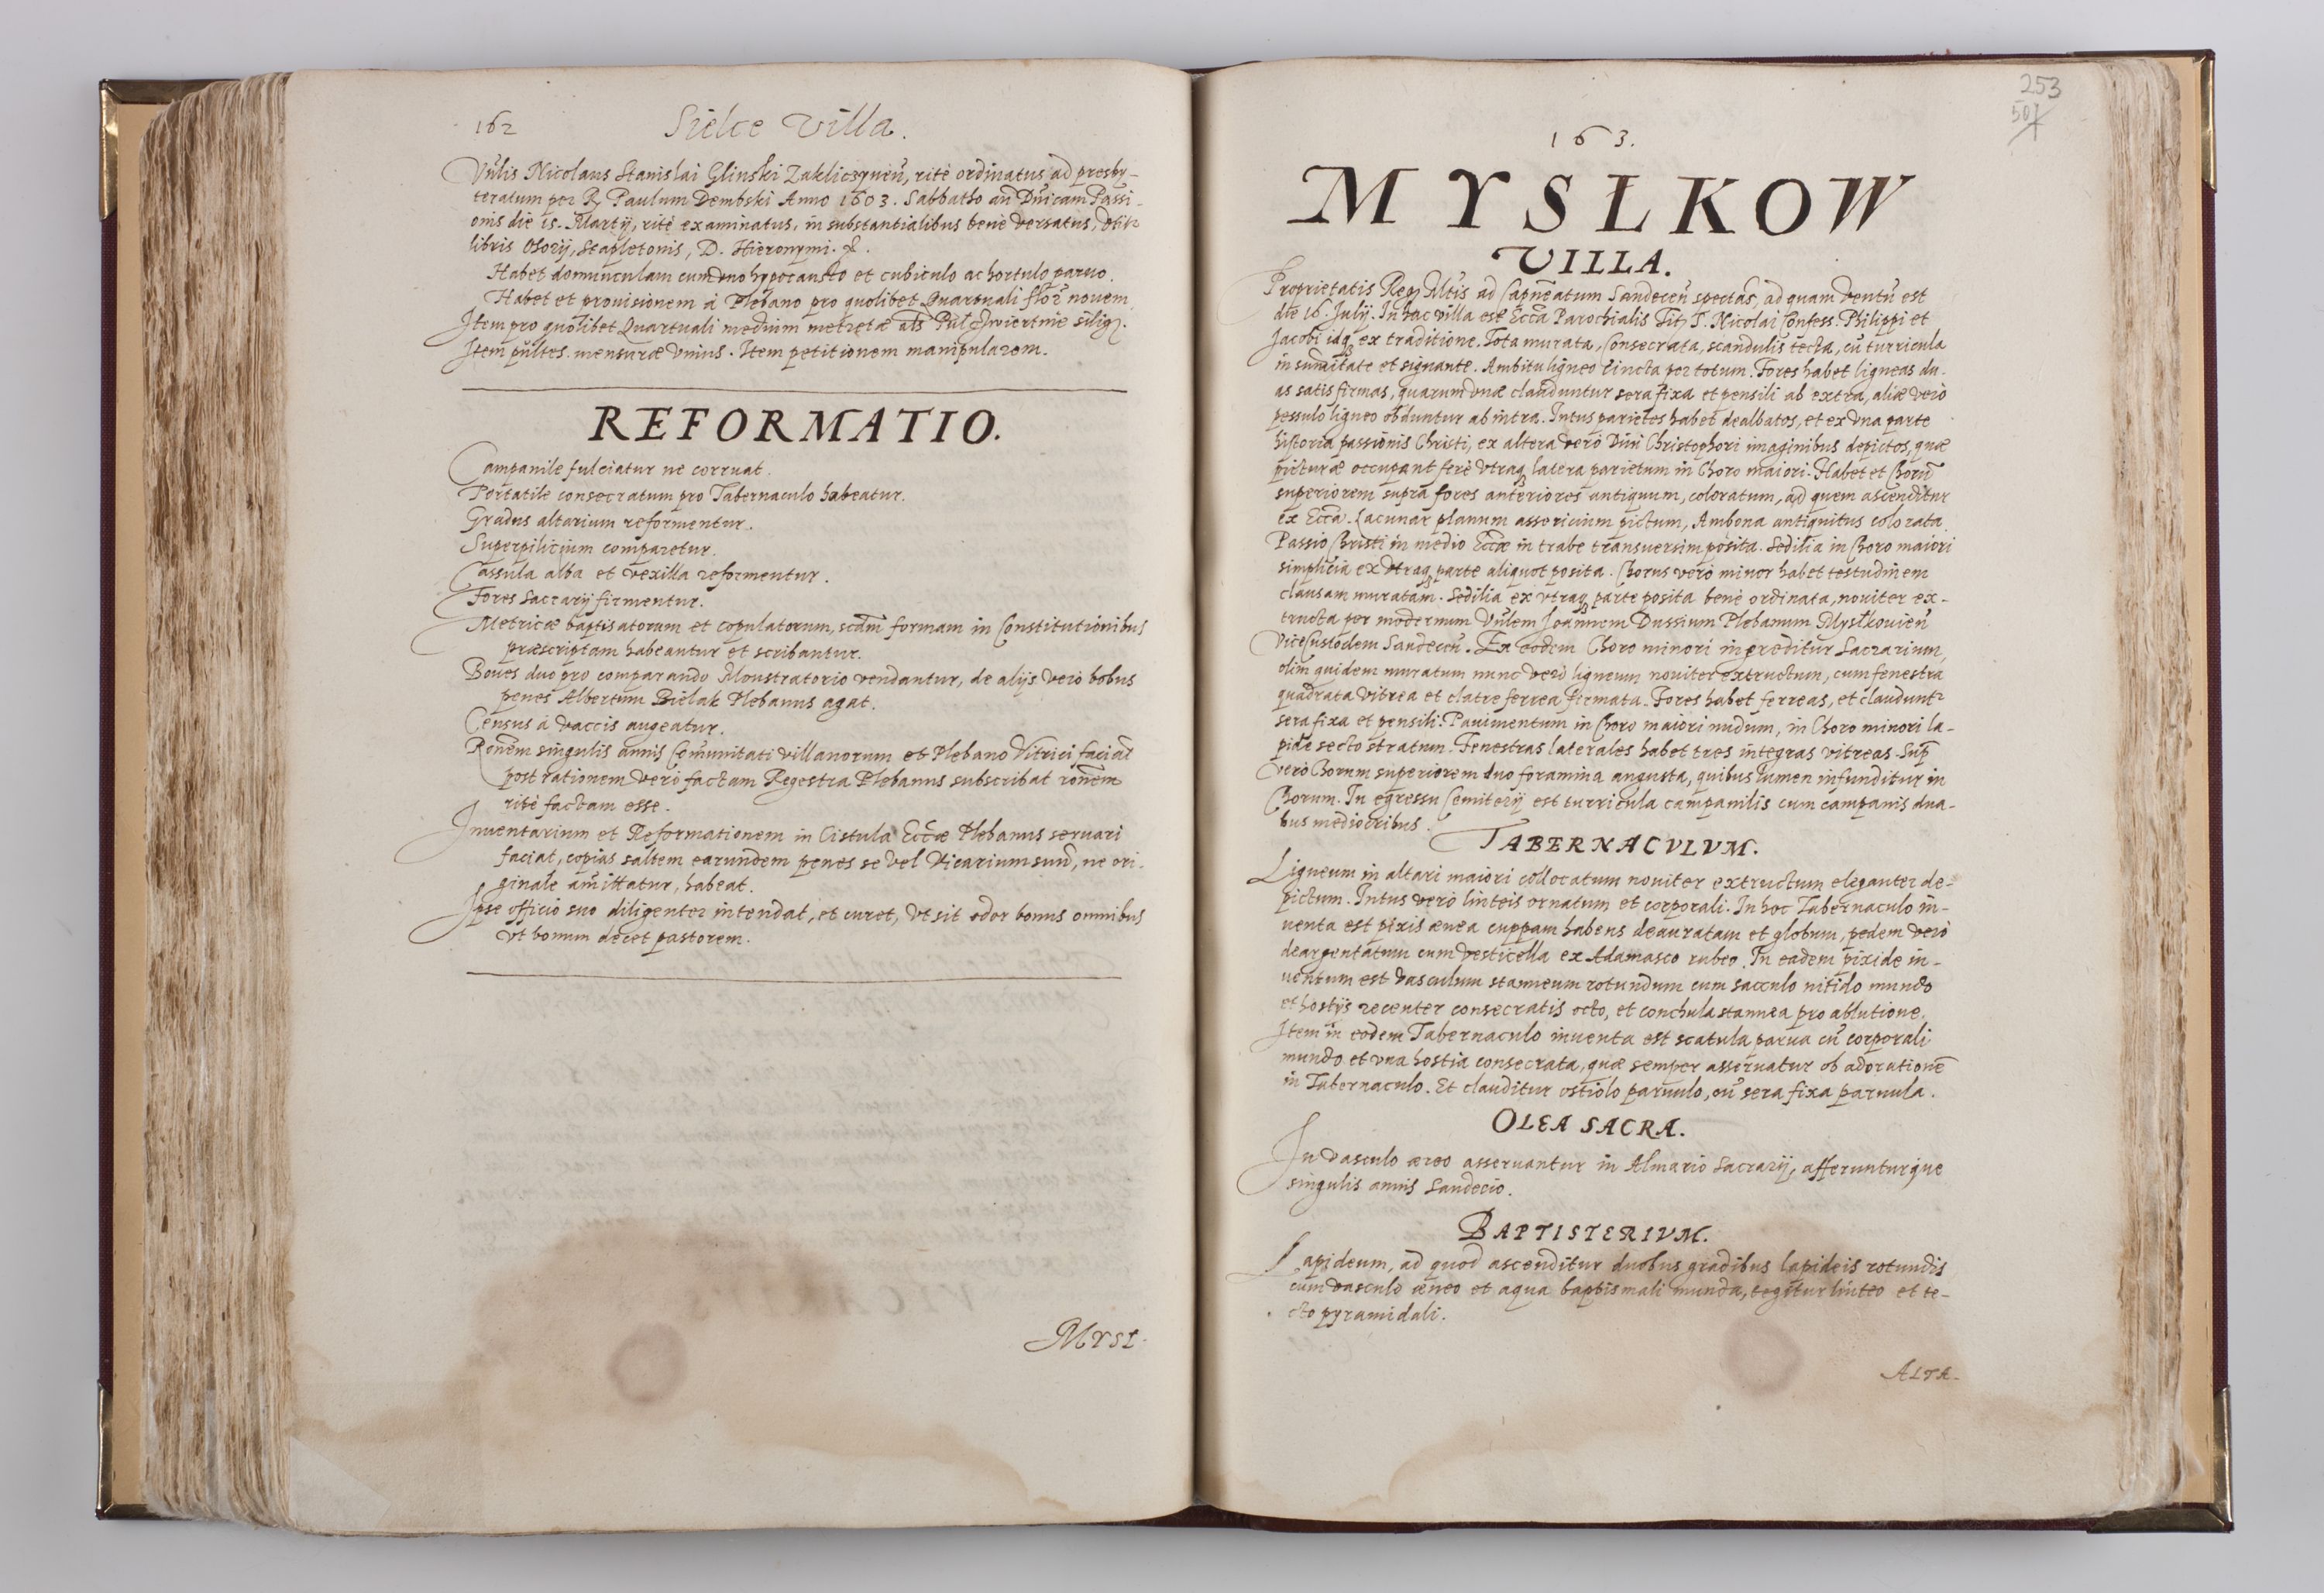 162
Sielce Villa.
Vnlis Nicolaus Stanislai Glinski Zakliczynen̄, ritè ordinatus ad presby-
teratum per R. Paulum Dembski Anno 1603. Sabbatho an̄ Dn̄icam Passi-
onis die 15. Martij, ritè examinatus, in substantialibus benè versatus,
libris Osorij, Stapletonis, D. Hieronymi. &.
Habet domunculam cum vno hypocausto et cubiculo ac hortulo paruo.
Habet et prouisionem à Plebano pro quolibet Quartuali flor̄ nouem
Item pro quolibet Quartuali medium metretæ al̄s Pul Cwiertnie siligs.
Item pultes mensuræ vnius. Item petitionem manipularem.
REFORMATIO.
Campanile fulciatur ne corruat.
Portatile consecratum pro Tabernaculo habeatur.
Gradus altarium reformentur.
Superpilicium comparetur.
Cassula alba et vexilla reformentur.
Fores Sacrarij firmentur.
Metricæ baptisatorum et copulatorum, scd̄am formam in Constitutionibus
præscriptam habeantur et scribantur.
Boues duo pro comparando Monstratorio vendantur, de alijs verò bobus
penes Albertum Bielak Plebanus agat.
Census à vaccis augeatur.
Rōnem singulis annis Com̄unitati villanorum et Plebano Vitrici faciāt
post rationem verò factam Regestra Plebanus subscribat rōnem
ritè factam esse.
Inuentarium et Reformationem in Cistula Ecc̄æ Plebanus seruari
faciat, copias saltem earundem penes se vel Vicarium suū, ne ori-
ginale amittatur, habeat.
Ipse officio suo diligenter intendat, et curet, vt sit odor bonus omnibus
vt bonum decet pastorem.
MYSL-
253
507
163.
MYSLKOW
VILLA.
Proprietatis Reg Mt̄is ad Capn̄eatum Sandecen̄ spectan̄s, ad quam ventū est
die 16. Julij. In hac villa est Ecc̄a Parochialis Tit. S. Nicolai Confess. Philippi et
Jacobi idq; ex traditione. Tota murata, Consecrata, scandulis tecta, cū turricula
in sum̄itate et signante. Ambitu ligneo cincta per totum. Fores habet ligneas du-
as satis firmas, quarum vnæ clauduntur sera fixa et pensili ab extra, aliæ verò
pessulo ligneo obduntur ab intra. Intus parietes habet dealbatos, et ex vna parte
historia passionis Christi, ex altera verò Diui Christophori imaginibus depictos, quæ
picturæ occupant ferè vtraq; latera parietum in Choro maiori. Habet et Chorū
superiorem supra fores anteriores antiquum, coloratum, ad quem ascenditur
ex Ecc̄a. Lacunar planum assericium pictum, Ambona antiquitus colorata
Passio Christi in medio Ecc̄æ in trabe transuersim posita. Sedilia in Choro maiori
simplicia ex vtraq; parte aliquot posita. Chorus verò minor habet testudinem
clausam muratam. Sedilia ex vtraq; parte posita benè ordinata, nouiter ex-
tructa per modernum Vn̄lem Joannem Dussium Plebanum Myslkouien̄
ViceCustodem Sandecen̄. Ex eodem Choro minori ingreditur Sacrarium,
olim quidem muratum nunc verò ligneum nouiter extructum, cum fenestra
quadrata vitrea et clatre ferrea firmata. Fores habet ferreas, et claudunt2
sera fixa et pensili. Pauimentum in Choro maiori nudum, in Choro minori la-
pide secto stratum. Fenestras laterales habet tres integras vitreas. Sup̄
verò Chorum superiorem duo foramina angusta, quibus lumen infunditur in
Chorum. In egressu Cemiterij est turricula campanilis cum campanis dua-
bus mediocribus.
TABERNACVLVM.
Ligneum in altari maiori collocatum nouiter extructum eleganter de-
pictum. Intus verò linteis ornatum et corporali. In hoc Tabernaculo in-
uenta est pixis ænea cuppam habens deauratam et globum, pedem verò
deargentatum cum vesticella ex Adamasco rubeo. In eadem pixide in-
uentum est vasculum stanneum rotundum cum sacculo nitido mundo
et hostijs recenter consecratis octo, et conchula stannea pro ablutione.
Item in eodem Tabernaculo inuenta est scatula parua cū corporali
mundo et vna hostia consecrata, quæ semper asseruatur ob adorationē
in Tabernaculo. Et clauditur ostiolo paruulo, cū sera fixa paruula.
OLEA SACRA.
In vasculo æreo asseruantur in Almario Sacrarij, afferunturque
singulis annis Sandecio.
BAPTISTERIVM.
Lapideum, ad quod ascenditur duobus gradibus lapideis rotundis
cum vasculo æneo et aqua baptismali munda, tegitur linteo et te-
cto pyramidali.
ALTA-